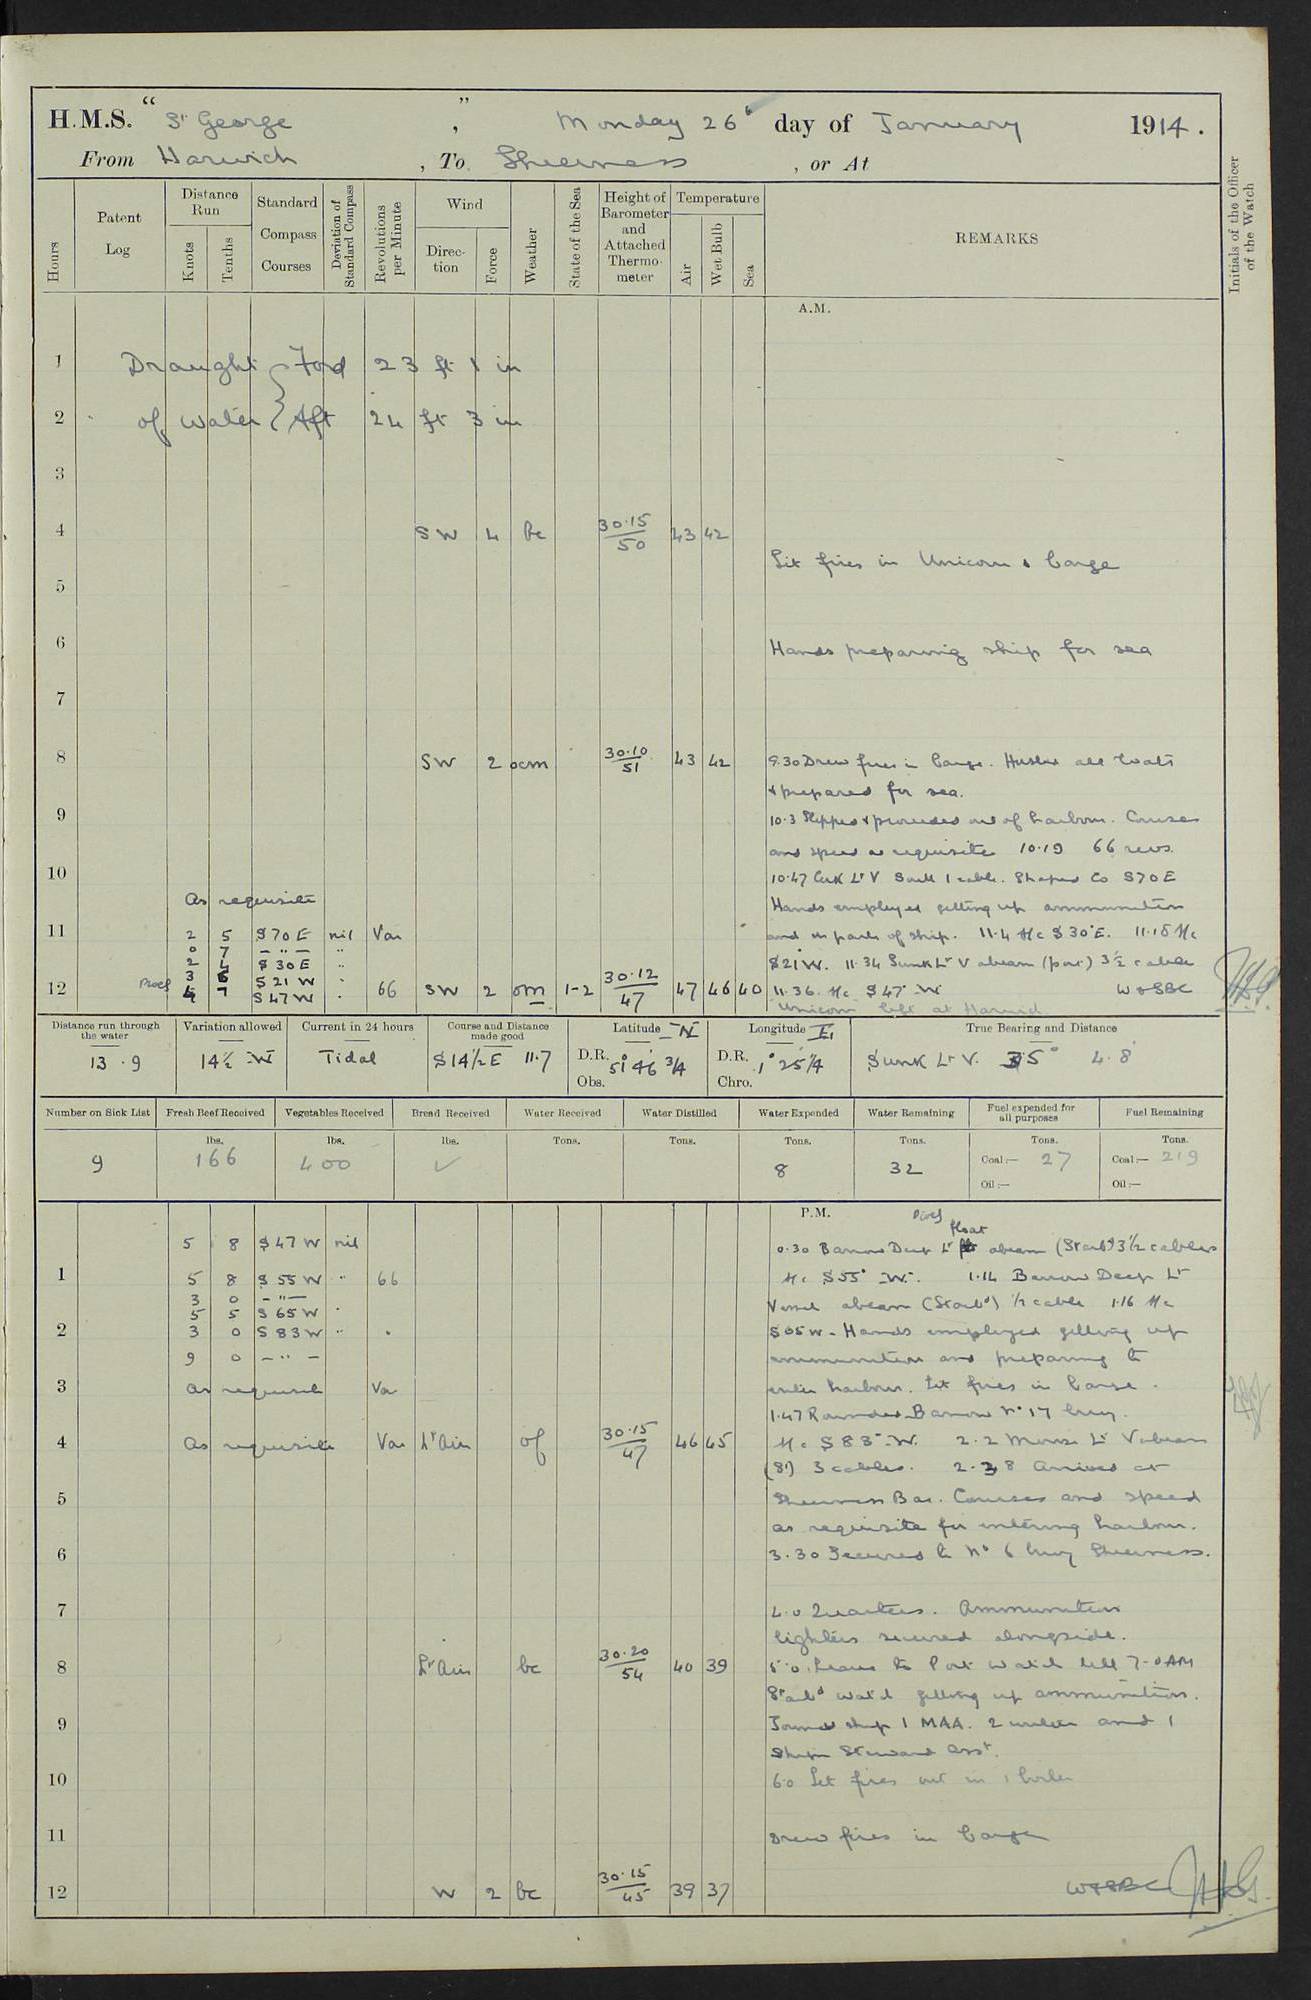 H.M.S. "St George", Monday 26th day of January 1914.
From Harwich, To Sheerness, or At
Hours
Patent Log
Distance Run
Knots
Tenths
Standard Compass Courses
Deviation of Standard Compass
Revolutions per Minute
Wind
Direction
Force
Weather
State of the Sea
Height of Barometer and Attached Thermometer
Temperature
Air
Wet Bulb
Sea
REMARKS
Initials of the Officer of the Watch
A.M.
1 Draught Ford 23 ft 1 in
2 of water Aft 24 ft 3 in
3
4 SW 4 bc 30.15 50 43 42
Lit fires in Unicorn & barge
5
6 Hands preparing ship for sea
7
8 SW 2 ocm 30.10 51 43 42
9.30 Drew fires in barge. Hoisted all boats
& prepared for sea.
9
10.3 Slipped & proceeded out of harbour. Courses
and speed as requisite 10.19 66 revs.
10
10.47 Cork Lt V South 1 cable. Shaped Co S70E
As requisite
Hands employed getting up ammunition
11 2 5 S70E nil Var
and in parts of ship. 11.4 A/c S30°E. 11.18 A/c
0 7 - " - "
2 4 S30E "
S21W. 11.34 Sunk Lt V abeam (port) 3½ cables
3 6 S21W "
12 4 7 S47W " 66 SW 2 om 1-2 30.12 47 47 46 40
11.36 A/c S47°W W&SBC
Unicorn left at Harwich
Distance run through the water
13.9
Variation allowed
14½ W
Current in 24 hours
Tidal
Course and Distance made good
S14½E 11.7
Latitude N
D.R. 51° 46¾
Obs.
Longitude E
D.R. 1° 25¼
Chro.
True Bearing and Distance
Sunk Lt V. 35° 4.8'
Number on Sick List
9
Fresh Beef Received
lbs.
166
Vegetables Received
lbs.
400
Bread Received
lbs.
✓
Water Received
Tons.
Water Distilled
Tons.
Water Expended
Tons.
8
Water Remaining
Tons.
32
Fuel expended for all purposes
Tons.
Coal:— 27
Oil:—
Fuel Remaining
Tons.
Coal:— 219
Oil:—
P.M.
5 8 S47W nil
0.30 Barrow Deep Lt float abeam (Starbd) 3½ cables
1 5 8 S55W " 66
A/c S55°W. 1.14 Barrow Deep Lt
3 0 - " -
Vessel abeam (Starbd) ½ cable 1.16 A/c
5 5 S65W "
2 3 0 S83W " "
S65W. Hands employed getting up
9 0 - " -
ammunition and preparing to
3 as requisite Var
enter harbour. Lit fires in barge.
1.47 Rounded Barrow No 17 buoy.
4 as requisite Var Lt Airs of 30.15 47 46 45
A/c S83°W. 2.2 Mouse Lt V abeam
(St) 3 cables. 2.38 Arrived at
5
Sheerness Bar. Courses and speed
as requisite for entering harbour.
6
3.30 Secured to No 6 buoy Sheerness.
7
4.0 Quarters. Ammunition
lighters secured alongside.
8 Lt Airs bc 30.20 54 40 39
5.0 Leave to Port watch till 7.0 AM
Starbd watch getting up ammunition.
9
Joined ship 1 MAA. 2 and 1
Ships Steward Asst.
10
6.0 Let fires out in 1 boiler
11 Drew fires in barge
12 W 2 bc 30.15 45 39 37 W&SBC